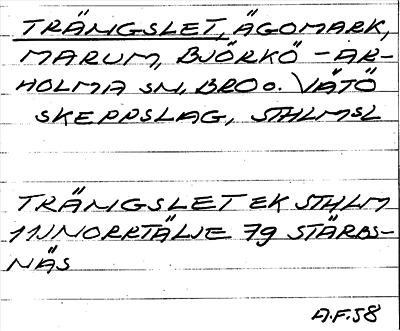 TRÄNGSLET, ÄGOMARK,
MARUM, BJÖRKÖ-AR-
HOLMA SN, BRO o. VÄTÖ
SKEPPSLAG, STHLMSL
TRÄNGSLET EK STHLM
11J NORRTÄLJE 79 STÄRBS-
NÄS
A.F.58